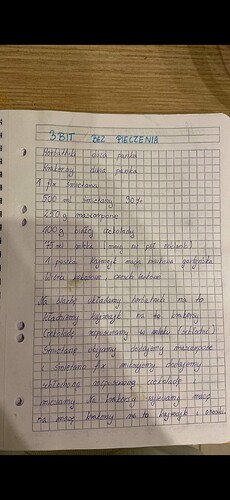 3BIT BEZ PIECZENIA
Herbatniki duża paczka
Krakersy duża paczka
1 fix śmietana
500 ml śmietany 30%
250 g mascarpone
100 g białej czekolady
75 ml mleka (mniej niż pół szklanki)
1 puszka kajmak masa krówkowa
Wiórki kokosowe, orzechy
Na blachę układamy herbatniki na to
kajmak na to krakersy
Czekoladę rozpuszczamy w mleku (ostudzić)
Śmietanę ubijamy dodajemy mascarpone
i śmietana fix miksujemy dodajemy
ostudzoną rozpuszczoną czekoladę i
mieszamy. Na krakersy wylewamy masę
na masę krakersy na to kajmak i orzechy